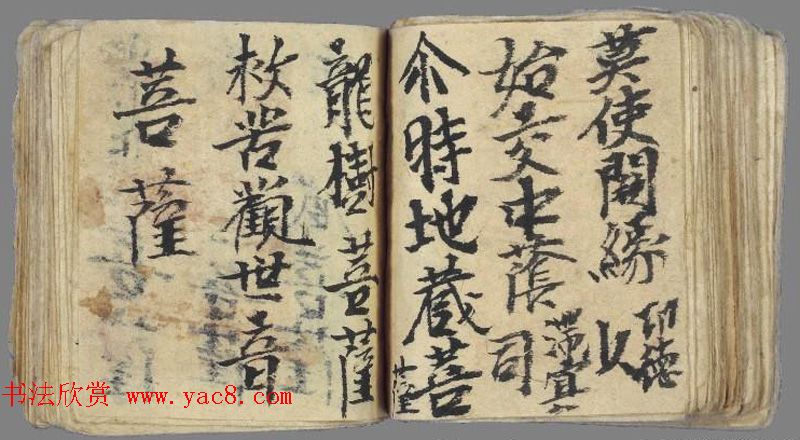 莫使開緣以
始交中蔭司
尒時地藏菩薩
龍樹菩薩
救苦觀世音
菩薩
书法欣赏 www.yac8.com